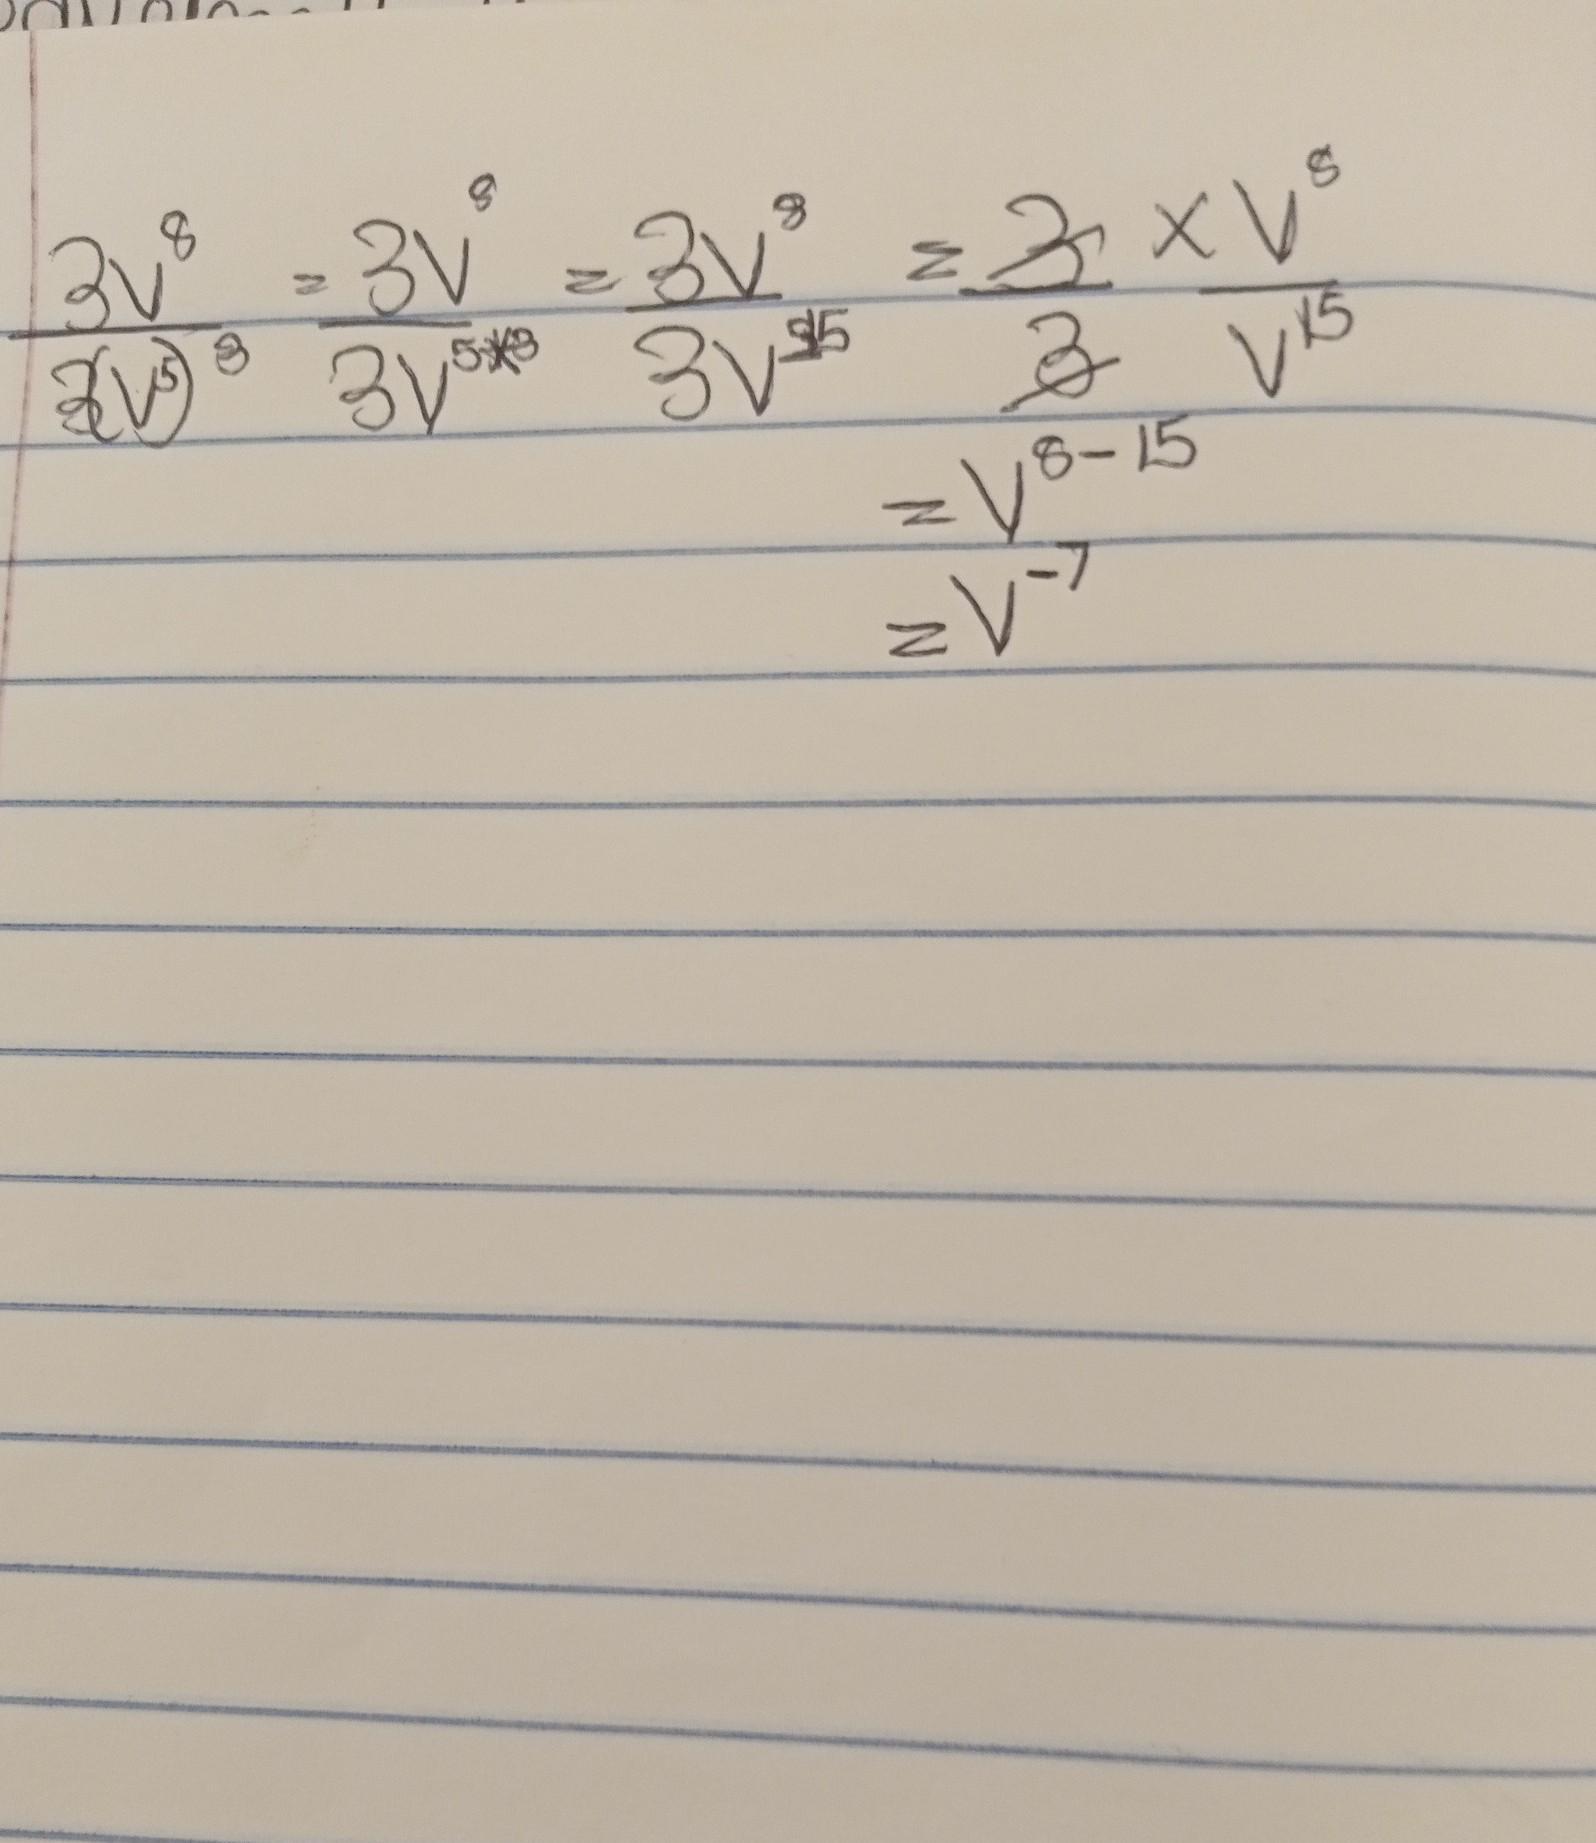 3V⁸/3(V⁵)³ = 3V⁸/3V⁵ˣ³ = 3V⁸/3V¹⁵ = 3/3 × V⁸/V¹⁵
= V⁸⁻¹⁵
= V⁻⁷